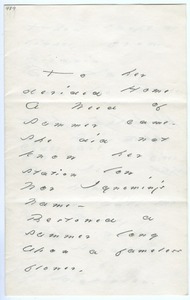 To her
derided Home
A Weed of
Summer came -
She did not
know her
station low
Nor Ignominy's
Name -
Bestowed a
summer long
Upon a fameless
flower -